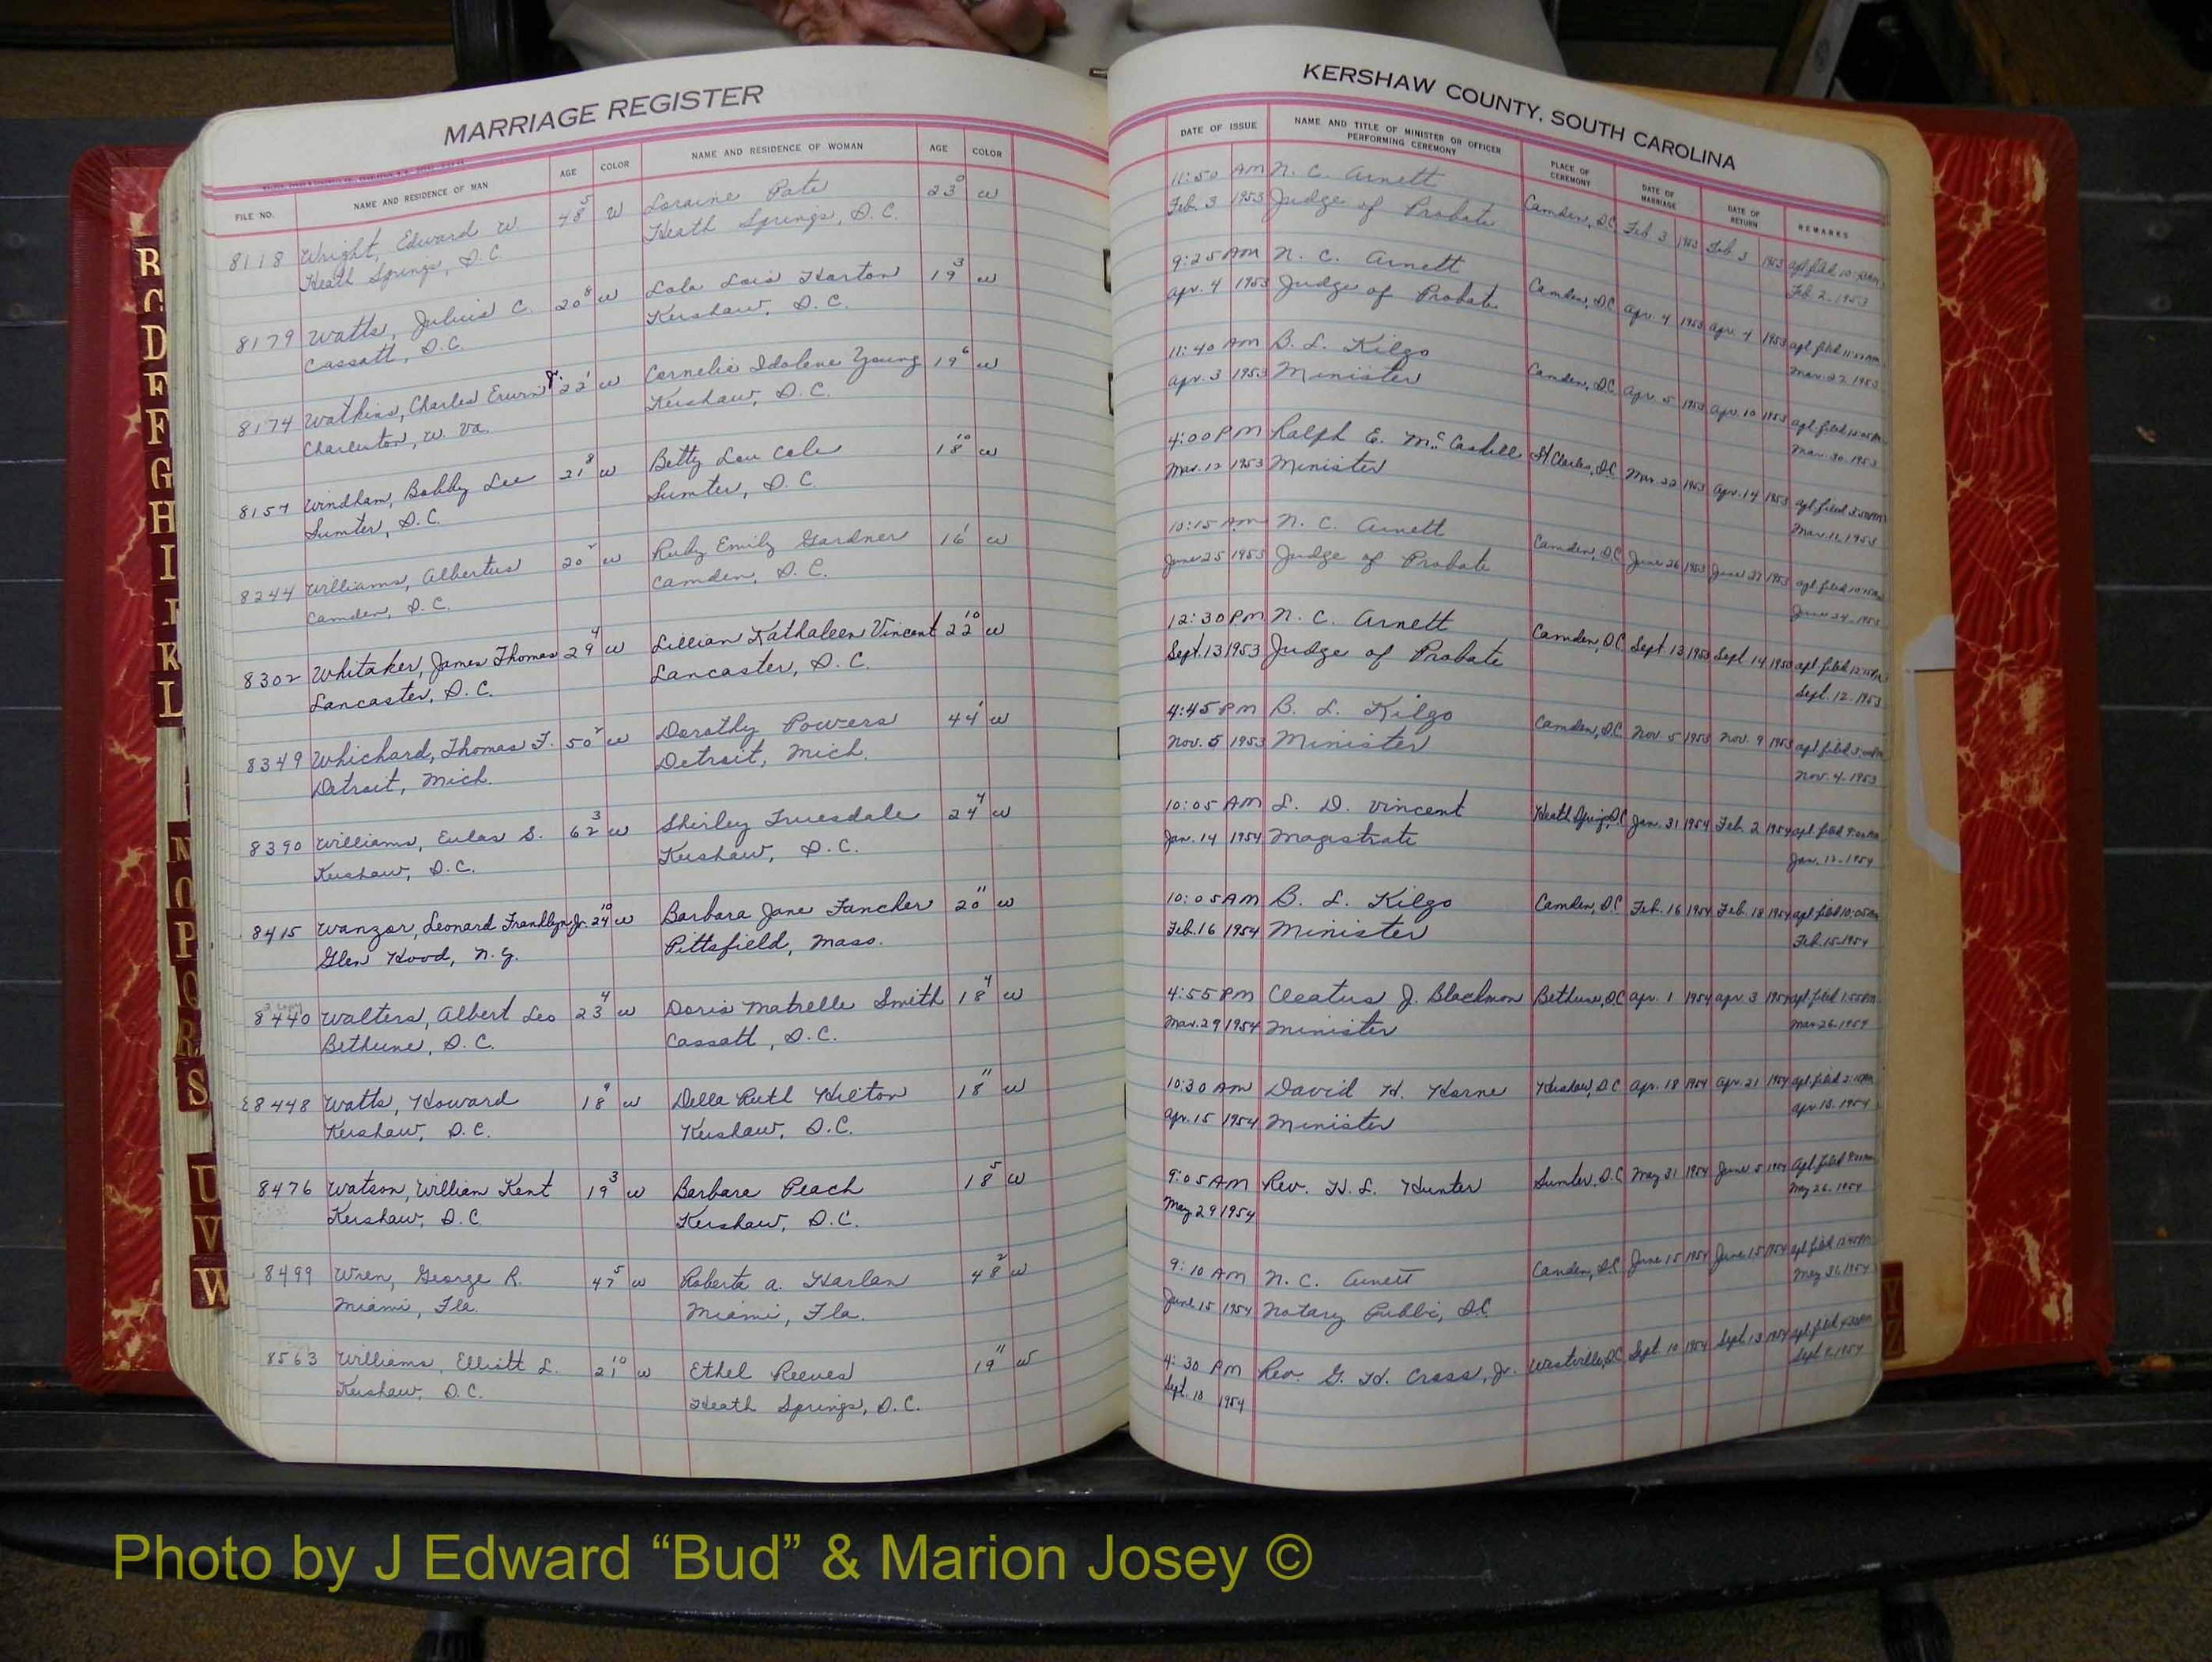 MARRIAGE REGISTER
FILE NO. NAME AND RESIDENCE OF MAN AGE COLOR NAME AND RESIDENCE OF WOMAN AGE COLOR
8118 Wright, Edward W. 48 5 W Loraine Pate 23 0 W
Heath Springs, S.C. Heath Springs, S.C.
8179 Watts, Julius C. 20 8 W Lola Lois Horton 19 3 W
Cassatt, S.C. Kershaw, S.C.
8174 Watkins, Charles Erwin Jr. 22 1 W Cornelia Idolene Young 19 6 W
Charleston, W. Va. Kershaw, S.C.
8157 Windham, Bobby Lee 21 8 W Betty Lou Cole 18 10 W
Sumter, S.C. Sumter, S.C.
8244 Williams, Albertus 20 2 W Ruby Emily Gardner 16 1 W
Camden, S.C. Camden, S.C.
8302 Whitaker, James Thomas 29 4 W Lillian Kathaleen Vincent 22 10 W
Lancaster, S.C. Lancaster, S.C.
8349 Whichard, Thomas F. 50 2 W Dorothy Powers 44 1 W
Detroit, Mich. Detroit, Mich.
8390 Williams, Eulas S. 62 3 W Shirley Truesdale 24 4 W
Kershaw, S.C. Kershaw, S.C.
8415 Wanzor, Leonard Franklyn Jr. 24 10 W Barbara Jane Fancher 20 11 W
Glen Wood, N.Y. Pittsfield, Mass.
8440 Walters, Albert Leo 23 4 W Doris Matrelle Smith 18 4 W
Bethune, S.C. Cassatt, S.C.
8448 Watts, Howard 18 9 W Della Ruth Hilton 18 11 W
Kershaw, S.C. Kershaw, S.C.
8476 Watson, William Kent 19 3 W Barbara Peach 18 5 W
Kershaw, S.C. Kershaw, S.C.
8499 Wren, George R. 47 5 W Roberta A. Harlan 48 2 W
Miami, Fla. Miami, Fla.
8563 Williams, Elliott L. 21 10 W Ethel Reeves 19 11 W
Kershaw, S.C. Heath Springs, S.C.
KERSHAW COUNTY, SOUTH CAROLINA
DATE OF ISSUE NAME AND TITLE OF MINISTER OR OFFICER PERFORMING CEREMONY PLACE OF CEREMONY DATE OF MARRIAGE DATE OF RETURN REMARKS
11:50 AM N. C. Arnett Camden, S.C. Feb 3 1953 Feb 3 1953 apl. filed
Feb. 3 1953 Judge of Probate Feb 2-1953
9:25 AM N. C. Arnett Camden, S.C. Apr. 4 1953 Apr. 4 1953 apl. filed
Apr. 4 1953 Judge of Probate Mar. 27 1953
11:40 AM B. L. Kilgo Camden, S.C. Apr. 5 1953 Apr. 10 1953 apl. filed
Apr. 3 1953 Minister Mar. 30-1953
4:00 PM Ralph E. McCaskill St Charles, S.C. Mar. 22 1953 Apr. 14 1953 apl. filed
Mar. 12 1953 Minister Mar. 11, 1953
10:15 AM N. C. Arnett Camden, S.C. June 26 1953 June 27 1953 apl. filed
June 25 1953 Judge of Probate June 24-1953
12:30 PM N. C. Arnett Camden, S.C. Sept 13 1953 Sept. 14 1953 apl. filed
Sept. 13 1953 Judge of Probate Sept. 12-1953
4:45 PM B. L. Kilgo Camden, S.C. Nov. 5 1953 Nov. 9 1953 apl. filed
Nov. 5 1953 Minister Nov. 4-1953
10:05 AM L. D. Vincent Heath Springs, S.C. Jan. 31 1954 Feb. 2 1954 apl. filed
Jan. 14 1954 Magistrate
10:05 AM B. L. Kilgo Camden, S.C. Feb. 16 1954 Feb. 18 1954 apl. filed 10:05 AM
Feb. 16 1954 Minister Feb. 15-1954
4:55 PM Cleatus J. Blackmon Bethune, S.C. Apr. 1 1954 Apr. 3 1954 apl. filed 1:55 PM
Mar. 29 1954 Minister Mar 26-1954
10:30 AM David H. Horne Kershaw, S.C. Apr. 18 1954 Apr. 21 1954 apl. filed
Apr. 15 1954 Minister Apr. 13. 1954
9:05 AM Rev. H. L. Hunter Sumter, S.C. May 31 1954 June 5 1954 apl. filed
May 29 1954 May 26. 1954
9:10 AM N. C. Arnett Camden, S.C. June 15 1954 June 15 1954 apl. filed
June 15 1954 Notary Public, S.C. May 31, 1954
4:30 PM Rev. G. H. Cross, Jr. Westville, S.C. Sept. 10 1954 Sept. 13 1954 apl. filed
Sept. 10 1954
B
C
D
E
F
G
H
I
K
L
N
O
P
Q
R
S
U
V
W
Y
Z
Photo by J Edward “Bud” & Marion Josey ©